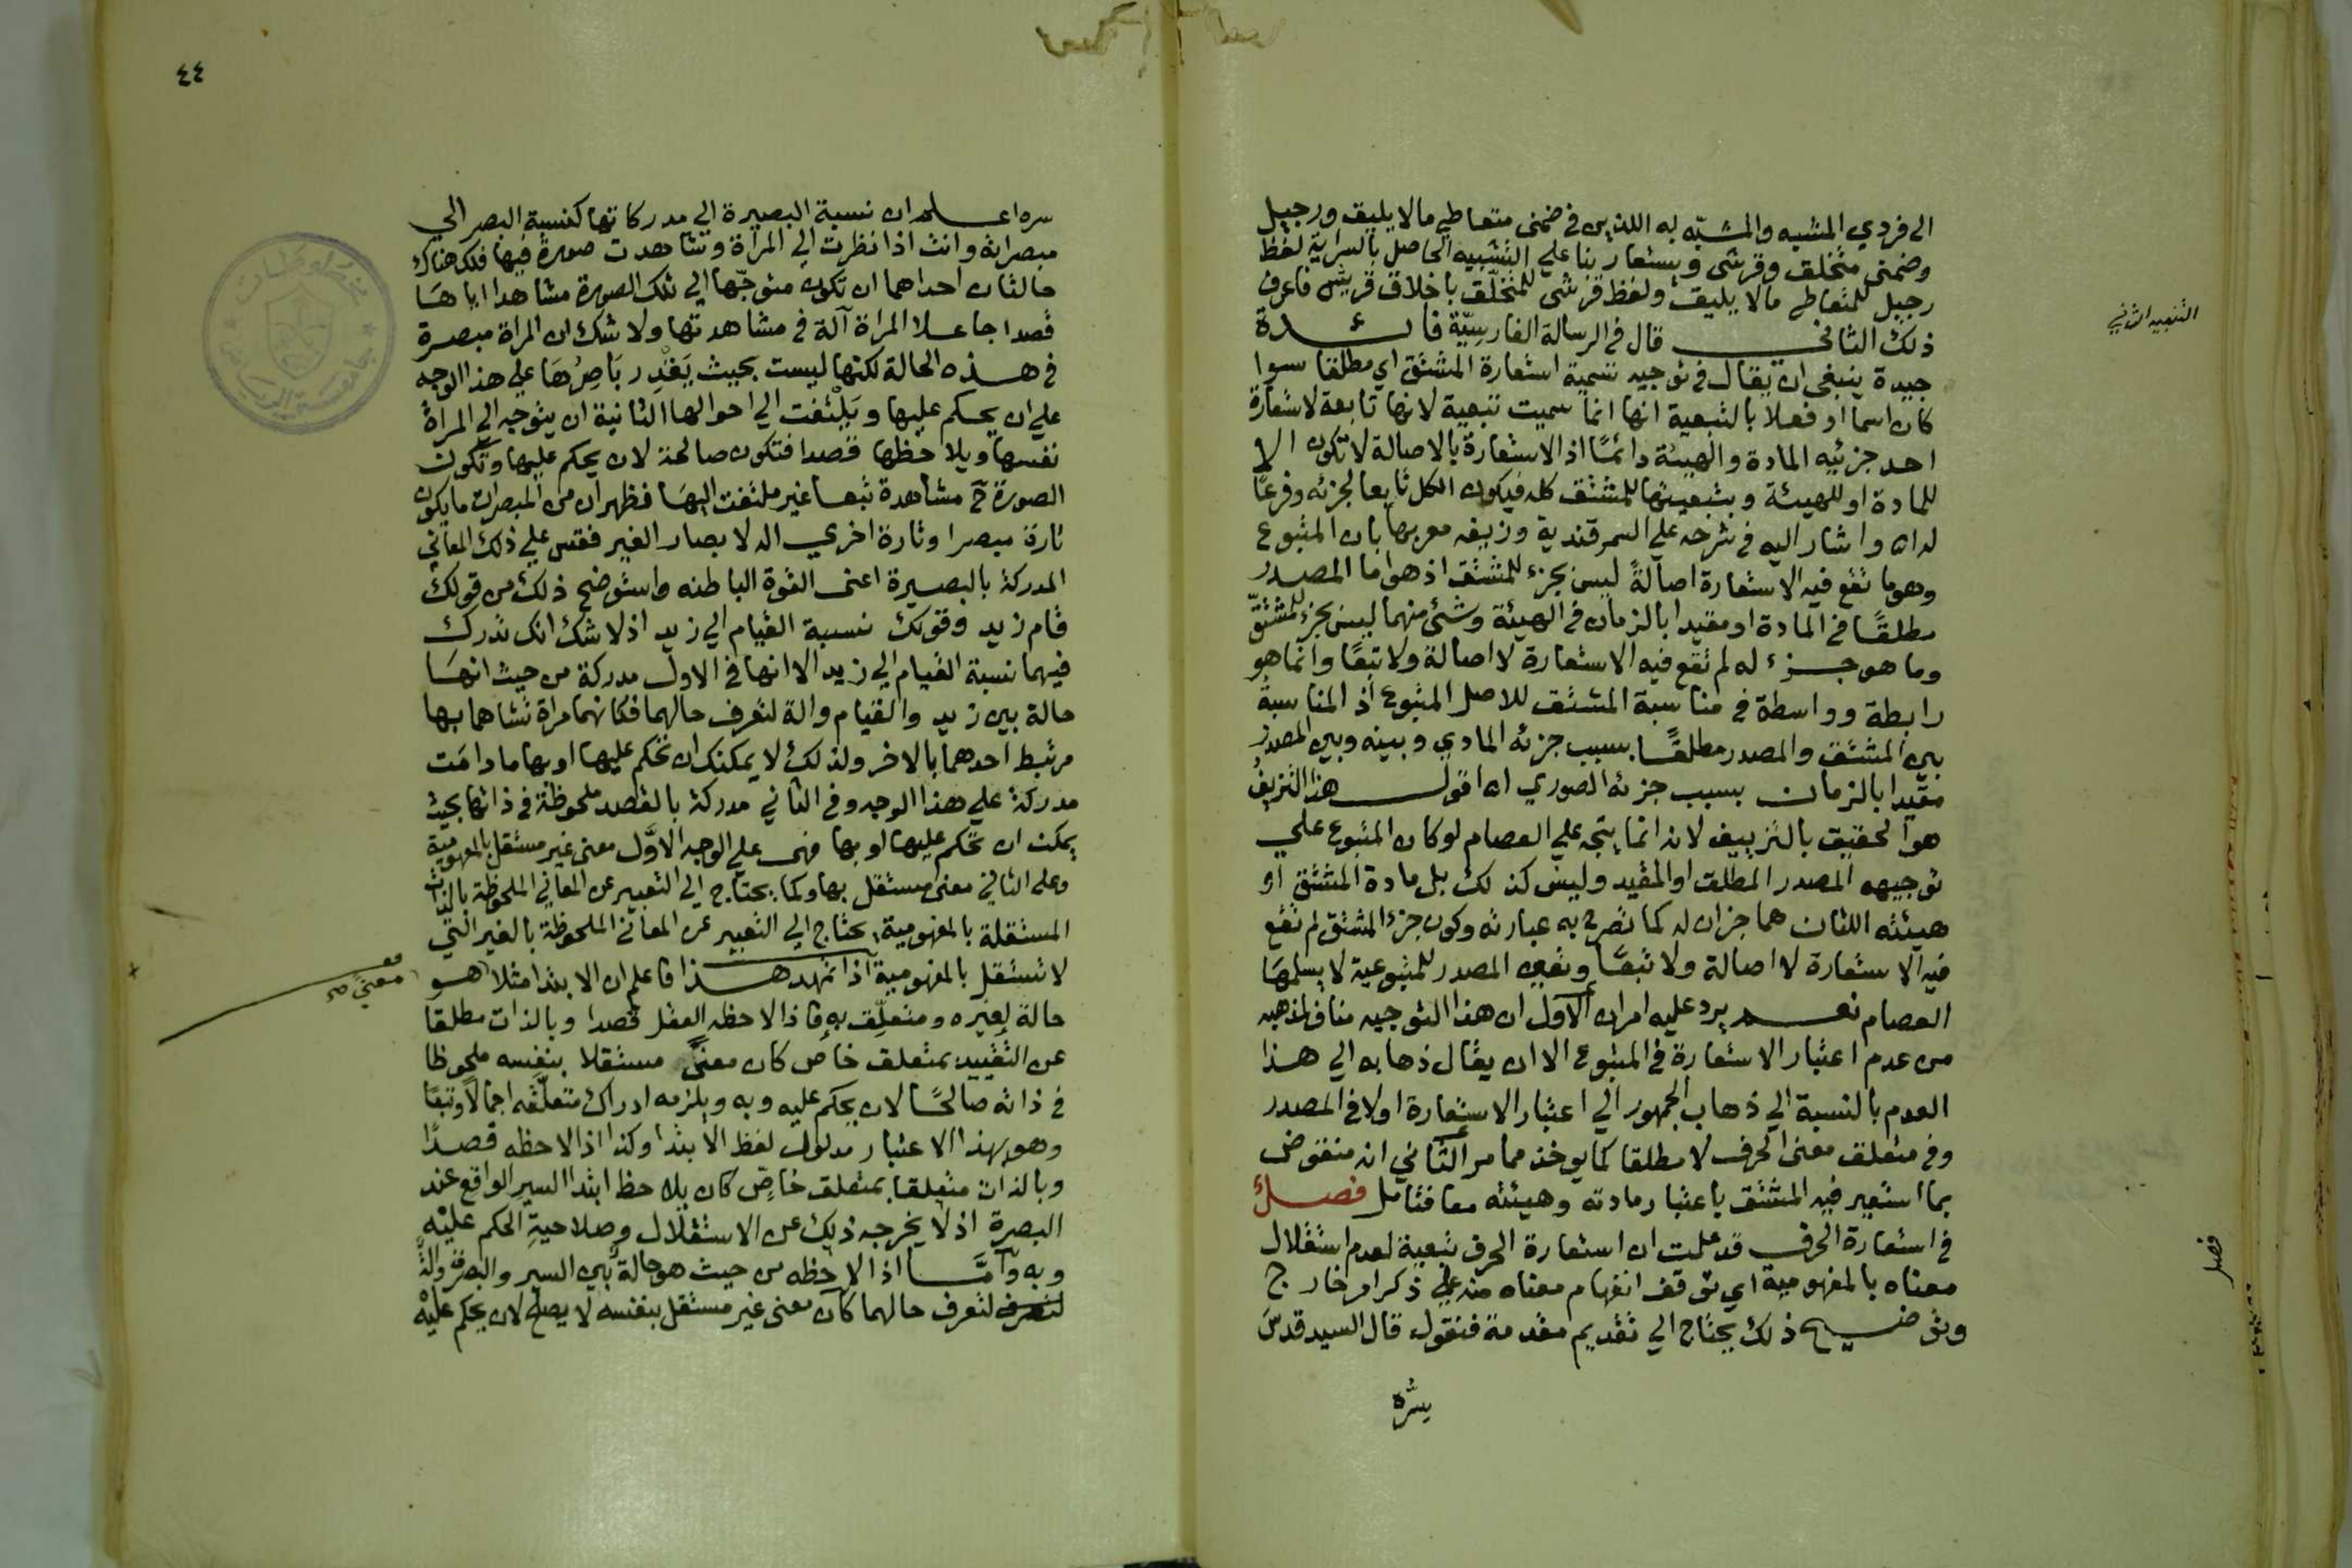 الى فردي المشبه والمشبّه به اللذين في ضمنى متعاطي مالا يليق ورجيل
وضمنى متخلق وقرشى ويستعار بنا على التشبيه الحاصل بالسراية لفظ
رجيل للمتعاطى مالا يليق ولفظ قرشى للمتخلّق باخلاق قريش فاعرف
التنبيه الثاني
ذلك الثانى قال في الرسالة الفارسيّة فائدة
جيدة ينبغى ان يقال في توجيه تسمية استعارة المشتق اي مطلقا سوا
كان اسما او فعلا بالتبعية انها انما سميت تبعية لانها تابعة لاستعارة
احد جزئيه المادة والهيئة دائمًا اذ الاستعارة بالاصالة لا تكون الا
للمادة او للهيئة وبتبعيتها للمشتق كله فيكون الكل تابعا لجزئه وفرعًا
له اه واشار اليه في شرحه على السمرقندية وزيفه معربها بان المتبوع
وهو ما تقع فيه الاستعارة اصالةً ليس بجزء للمشتق اذ هو اما المصدر
مطلقًا في المادة او مقيدا بالزمان في الهيئة وشئ منهما ليس بجزء للمشتقّ
وما هو جزء له لم تقع فيه الاستعارة لا اصالة ولا تبعًا وانما هو
رابطة وواسطة في مناسبة المشتق للاصل المتبوع اذ المناسبة
بين المشتق والمصدر مطلقًا بسبب جزئه المادي وبينه وبين المصدر
مقيدا بالزمان بسبب جزئه الصوري اه اقول هذا التزييف
هو الحقيق بالتزييف لانه انما يتجه على العصام لو كان المتبوع على
توجيهه المصدر المطلق او المقيد وليس كذلك بل مادة المشتق او
هيئته اللتان هما جزان له كما تصرح به عبارته وكون جزء المشتق لم تقع
فيه الاستعارة لا اصالة ولا تبعًا وتعين المصدر للمتبوعية لا يسلمها
العصام نعم يرد عليه امران الاول ان هذا التوجيه مناف لمذهبه
من عدم اعتبار الاستعارة في المتبوع الا ان يقال ذهابه الي هذا
العدم بالنسبة الي ذهاب الجمهور الي اعتبار الاستعارة اولا في المصدر
وفي متعلق معنى الحرف لا مطلقا كما يوخذ مما مر الثاني انه منقوض
بما استعير فيه المشتق باعتبار مادته وهيئته معا فتامل فصل
فصل
في استعارة الحرف قد علمت ان استعارة الحرف تبعية لعدم استقلال
معناه بالمفهومية اي توقف انفهام معناه منه على ذكر امر خارج
وتوضيح ذلك يحتاج الي تقديم مقدمة فنقول قال السيد قدس
سرّه
٤٤
سره اعلم ان نسبة البصيرة الي مدركاتها كنسبة البصر الي
مبصراته وانت اذا نظرت الي المراة وشاهدت صورة فيها فلك هناك
حالتان احداهما ان تكون متوجّها الي تلك الصورة مشاهدا اياها
قصدا جاعلا المراة آلة في مشاهدتها ولا شك ان المراة مبصرة
في هذه الحالة لكنها ليست بحيث يَقْدِر بَاصِرُهَا على هذا الوجه
على ان يحكم عليها ويَلْتفت الي احوالها الثانية ان يتوجه الي المراة
نفسها ويلاحظها قصدا فتكون صالحة لان يحكم عليها وتكون
الصورة ح مشاهدة تبعا غير ملتفت اليها فظهر ان من المبصرات ما يكون
تارة مبصرا وتارة اخري اله لابصار الغير فقس علي ذلك المعاني
المدركة بالبصيرة اعنى القوة الباطنه واستوضح ذلك من قولك
قام زيد وقولك نسبة القيام الي زيد اذ لا شك انك تدرك
فيهما نسبة القيام الي زيد الا انها في الاول مدركة من حيث انها
حالة بين زيد والقيام والة لتعرف حالهما فكانهما مراة تشاهما بها
مرتبط احدهما بالاخر ولذلك لا يمكنك ان تحكم عليها او بها ما دامت
مدركة علي هذا الوجه وفي الثاني مدركة بالقصد ملحوظة في ذاتها بحيث
يمكنك ان تحكم عليها او بها فهى على الوجه الاوّل معنى غير مستقل بالمفهومية
وعلى الثاني معنى مستقل بها وكما يحتاج الي التعبير عن المعاني الملحوظة بالذات
المستقلة بالمفهومية يحتاج الي التعبير عن المعاني الملحوظة بالغير التي
لا تستقل بالمفهومية اذا تمهد هذا فاعلم ان الابتدا مثلا هو
معنى صح
حالة لغيره ومتعلّق به فاذا لاحظه العقل قصدا وبالذات مطلقا
عن التقييد بمتعلق خاص كان معنًى مستقلا بنفسه ملحوظا
في ذاته صالحًا لان يحكم عليه وبه ويلزمه ادراك متعلّقه اجمالا وتبعًا
وهو بهذا الاعتبار مدلول لفظ الابتدا وكذا اذا لاحظه قصدًا
وبالذات متعلقا بمتعلق خاصّ كان يلاحظ ابتدا السير الواقع عند
البصرة اذ لا يخرجه ذلك عن الاستقلال وصلاحية الحكم عليه
وبه وأمَّا اذا لاحظه من حيث هو حالة بين السير والبصرة والة
لتعرف حالهما كان معنى غير مستقل بنفسه لا يصلح لان يحكم عليه